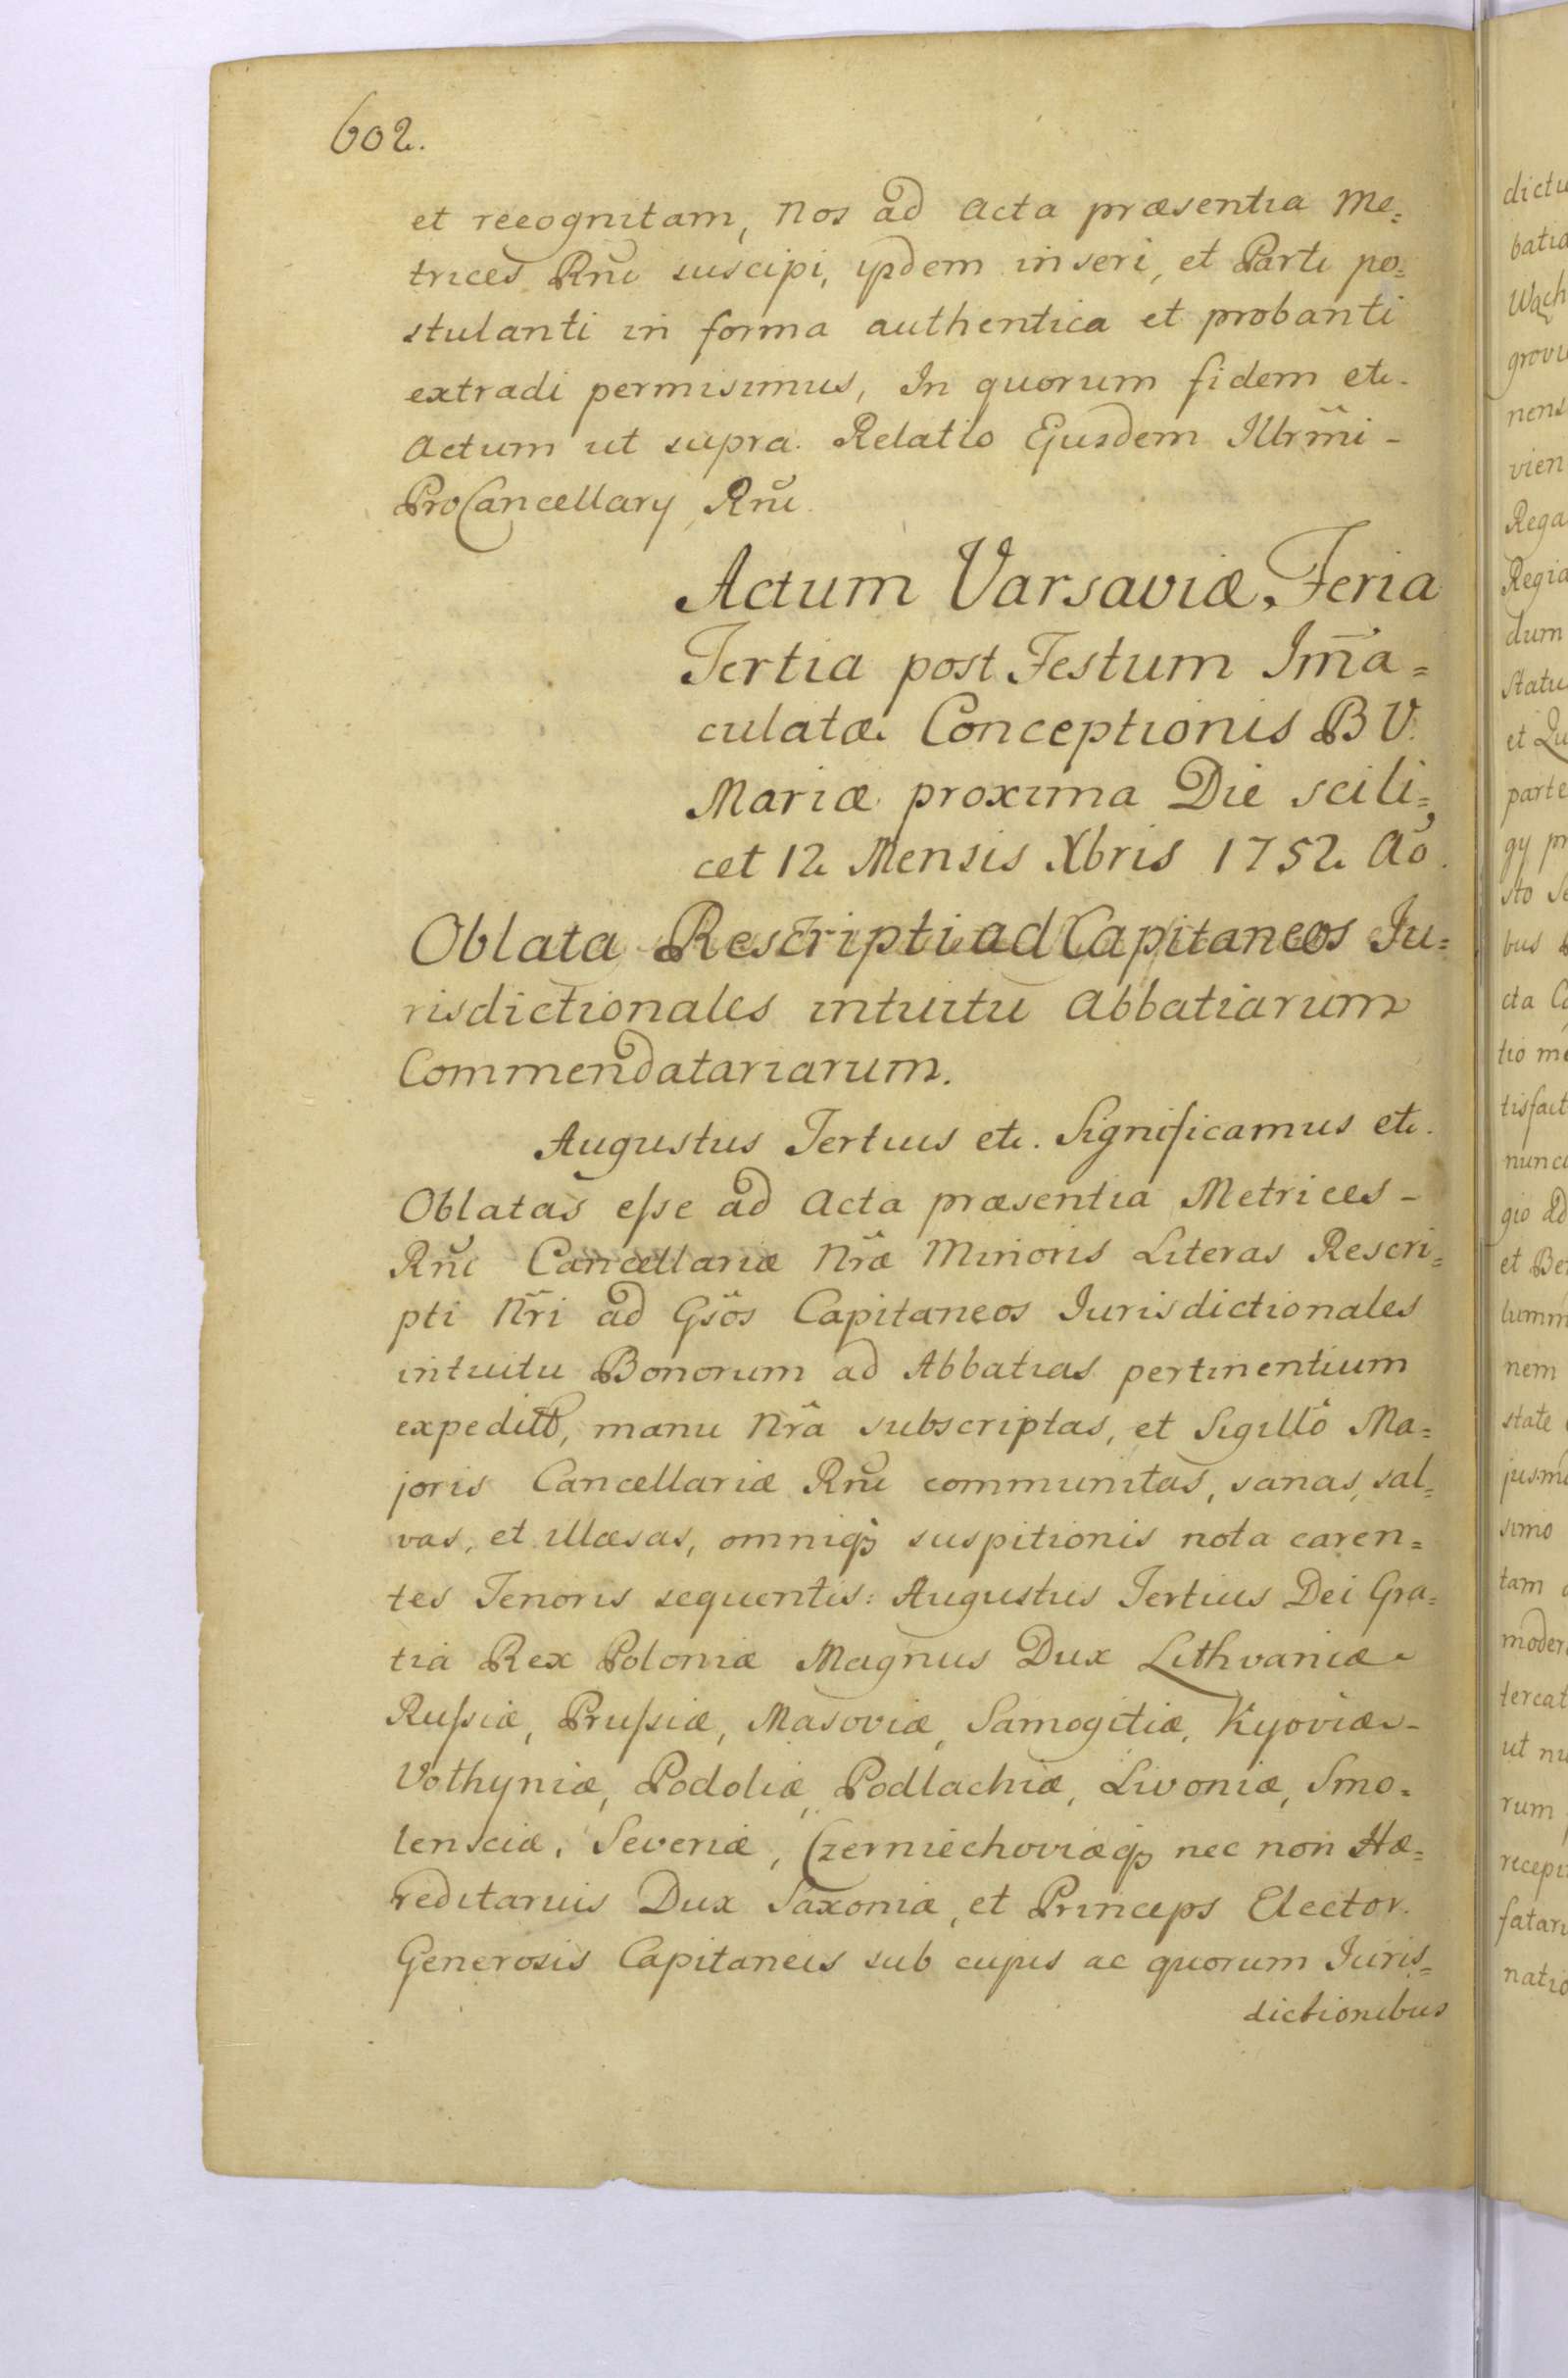 602.
et recognitam, Nos ad Acta præsentia Me=
trices Rñi suscipi, ijsdem inseri, et Parti po=
stulanti in forma authentica et probanti
extradi permisimus, In quorum fidem etc.
Actum ut supra. Relatio Ejusdem Illrm̃i -
ProCancellarij Rñi.
Actum Varsaviæ, Feria
Tertia post Festum Im̃a=
culatæ Conceptionis B V.
Mariæ proxima Die scili=
cet 12 Mensis Xbris 1752 Aõ.
Oblata Rescripti ad Capitaneos Ju=
risdictionales intuitu Abbatiarum
Commendatariarum.
Augustus Tertius etc. Significamus etc.
Oblatas esse ad Acta præsentia Metrices -
Rñi Cancellariæ Nr̃æ Minoris Literas Rescri=
pti Nr̃i ad Gsõs Capitaneos Jurisdictionales
intuitu Bonorum ad Abbatias pertinentium
expeditt, manu Nr̃a subscriptas, et Sigillo Ma=
joris Cancellariæ Rñi communitas, sanas, sal=
vas, et illæsas, omniq3 suspitionis nota caren=
tes Tenoris sequentis: Augustus Tertius Dei Gra=
tia Rex Poloniæ Magnus Dux Lithvaniæ
Russiæ, Prussiæ, Masoviæ, Samogitiæ, Kyoviæ -
Volhyniæ, Podoliæ, Podlachiæ, Livoniæ, Smo=
lensciæ, Severiæ, Czerniechoviæq3 nec non Hæ=
reditarius Dux Saxoniæ, et Princeps Elector.
Generosis Capitaneis sub cujus ac quorum Juris=
dictionibus
dictu
batia
Wach
grovi
nens
vien
Rega
Regia
dum
Statu
et Qu
parte
gy pr
sto Se
bus
cta Ca
tio me
tisfact
nunc
gio ad
et Be
lumm
nem
state
jusm
simo
tam
moder
tercat
ut nu
rum
recepi
fatar
natio